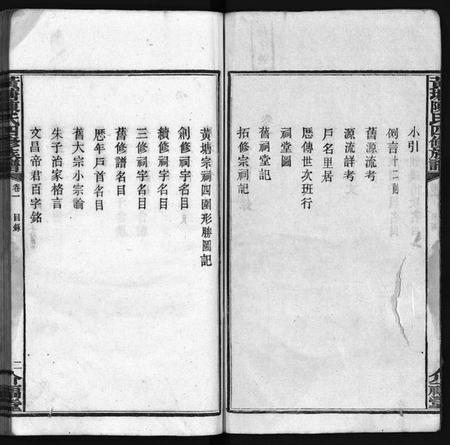 小引
例言十二則
舊源流考
源流詳考
戶名里居
歷傳世次班行
祠堂圖
舊祠堂記
拓修宗祠記
黃塘宗祠四圍形勝圖記
創修祠字名目
續修祠字名目
三修祠字名目
舊修譜名目
歷年戶首名目
舊大宗小宗論
朱子治家格言
文昌帝君百字銘
黃塘陳氏四修族譜
卷一
目錄
二
介福堂